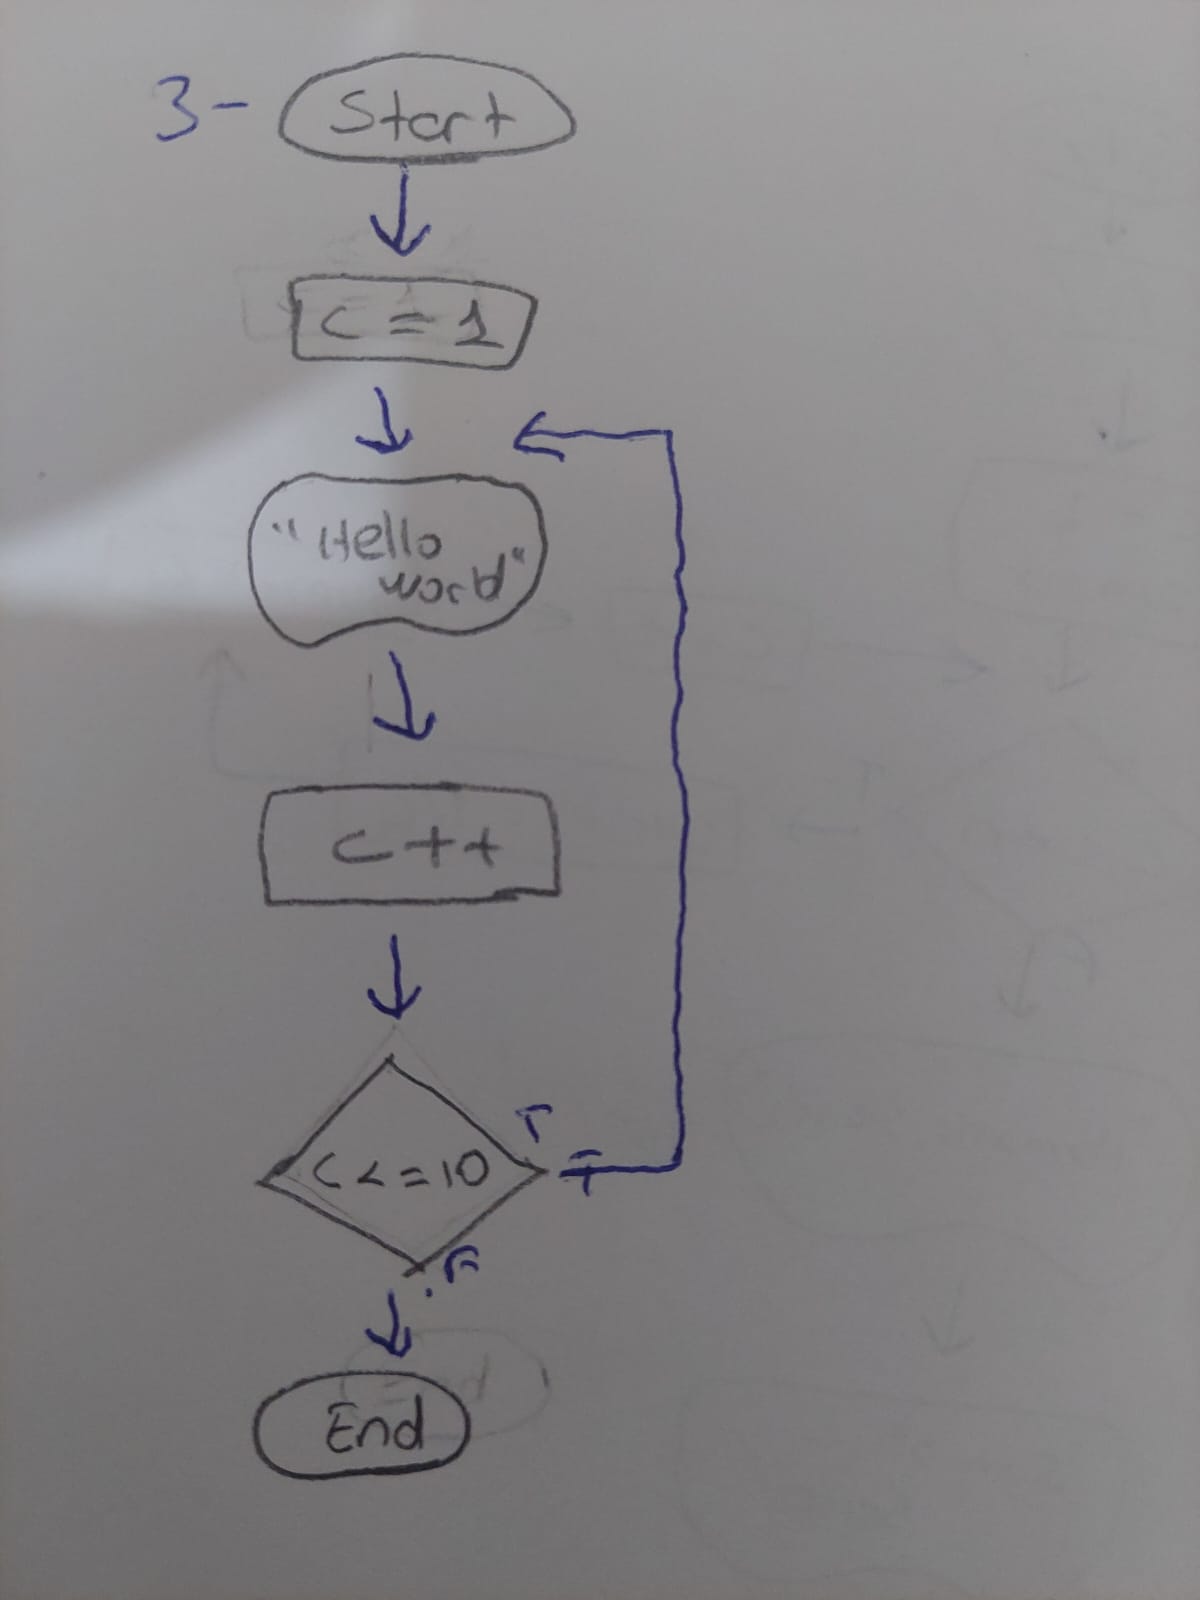 3- Start
C = 1
"Hello
world"
C++
T
C <= 10
T
F
End